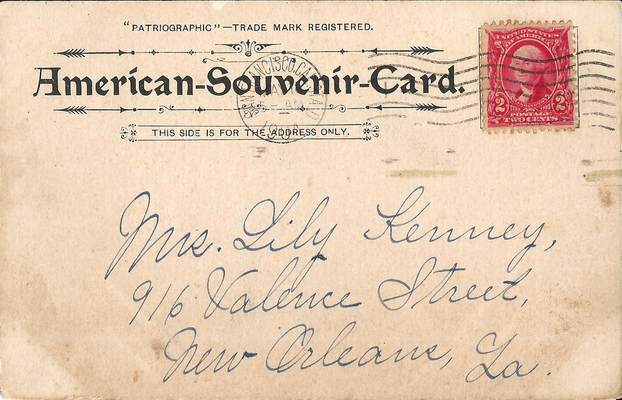 "PATRIOGRAPHIC"—TRADE MARK REGISTERED.
American-Souvenir-Card.
THIS SIDE IS FOR THE ADDRESS ONLY.
UNITED STATES
OF AMERICA
2 2
POSTAGE
TWO CENTS
Mrs. Lily Kenney,
916 Valence Street,
New Orleans, La.